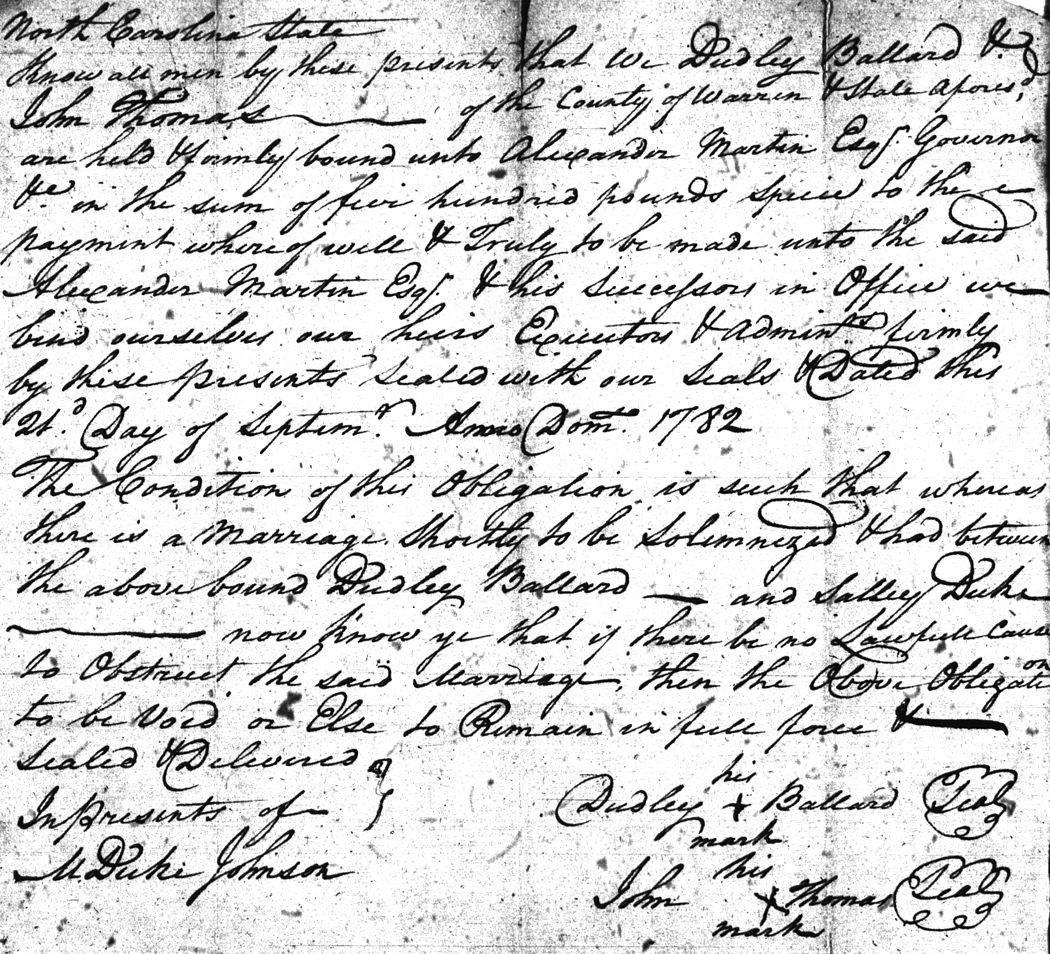 North Carolina State
Know all men by these presents that we Dudley Ballard &
John Thomas of the County of Warren & State afores.d
are held & firmly bound unto Alexander Martin Esq.r Governor
&c in the sum of five hundred pounds specie to the
payment whereof well & Truly to be made unto the said
Alexander Martin Esq.r & his Successors in Office we
bind ourselves our heirs Executors & Admin.trs firmly
by these presents Sealed with our Seals & Dated this
21.d Day of Septem.r Anno Dom. 1782
The Condition of this Obligation is such that whereas
there is a Marriage Shortly to be Solemnized & had between
the above bound Dudley Ballard — and Salley Duke
— now Know ye that if there be no Lawfull Cause
to Obstruct the said Marriage, then the Above Obligation
to be Void or Else to Remain in full force &
Sealed & Delivered
In presents of
M. Duke Johnson
his
Dudley + Ballard Seal
mark
his
John + Thomas Seal
mark